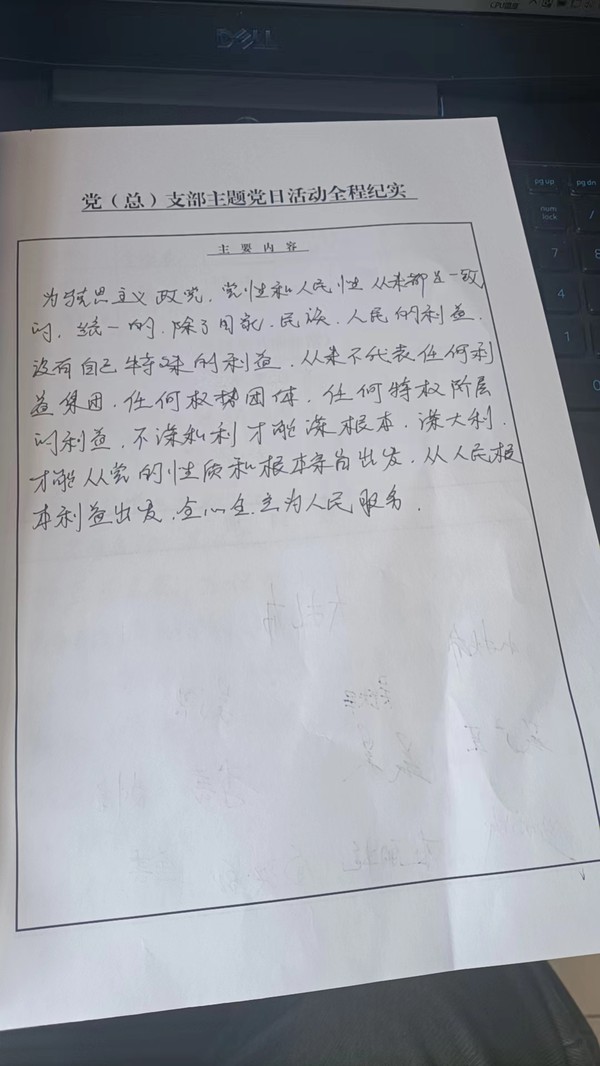 DELL
pg up
pg dn
num
lock
/
7
4
1
党（总）支部主题党日活动全程纪实
主要内容
为马克思主义政党，党性和人民性从来都是一致
的，统一的，除了国家、民族、人民的利益，
没有自己特殊的利益，从来不代表任何利
益集团、任何权势团体、任何特权阶层
的利益，不谋私利才能谋根本、谋大利，
才能从党的性质和根本宗旨出发，从人民根
本利益出发，全心全意为人民服务。